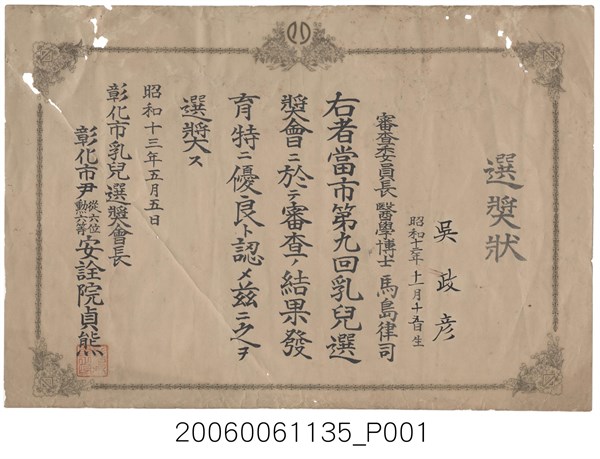 選奬狀
吳政彦
昭和十二年十一月十五日生
審查委員長 醫學博士 馬島律司
右者當市第九回乳兒選
奬會ニ於テ審查ノ結果發
育特ニ優良ト認メ玆ニ之ヲ
選奬ス
昭和十三年五月五日
彰化市乳兒選奬會長
彰化市尹 從六位 勲六等 安詮院貞熊
20060061135_P001